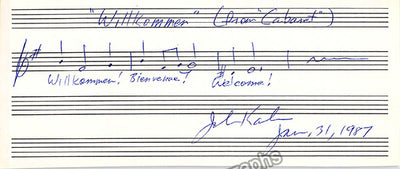 "Willkommen" (from "Cabaret")
Willkommen! Bienvenue! Welcome!
John Kander
Jan, 31, 1987